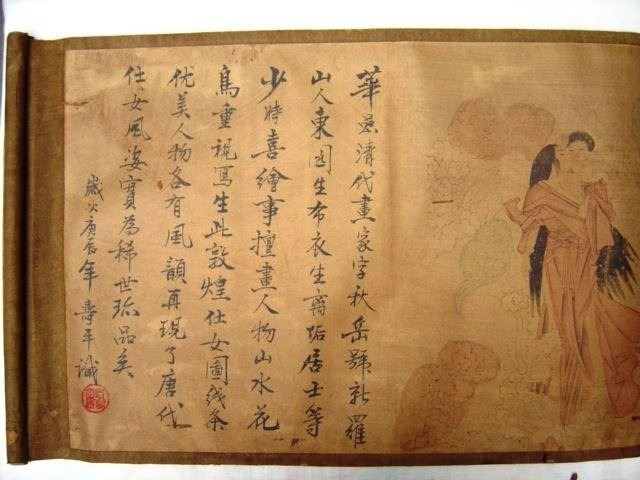 華嵒清代畫家字秋岳號新羅
山人東園生布衣生離垢居士等
少時喜繪事擅畫人物山水花
鳥重視寫生此敦煌仕女圖线条
优美人物各有風韻再現了唐代
仕女風姿實為稀世珍品矣
歲次庚辰年壽平識